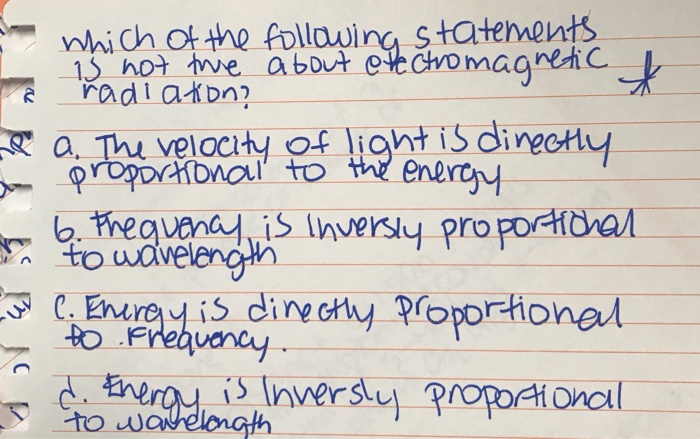 which of the following statements
is not true about electromagnetic
radiation?
a. The velocity of light is directly
proportional to the energy
b. Frequency is Inversly proportional
to wavelength
C. Energy is directly Proportional
to Frequency.
d. Energy is Inversly proportional
to wavelength